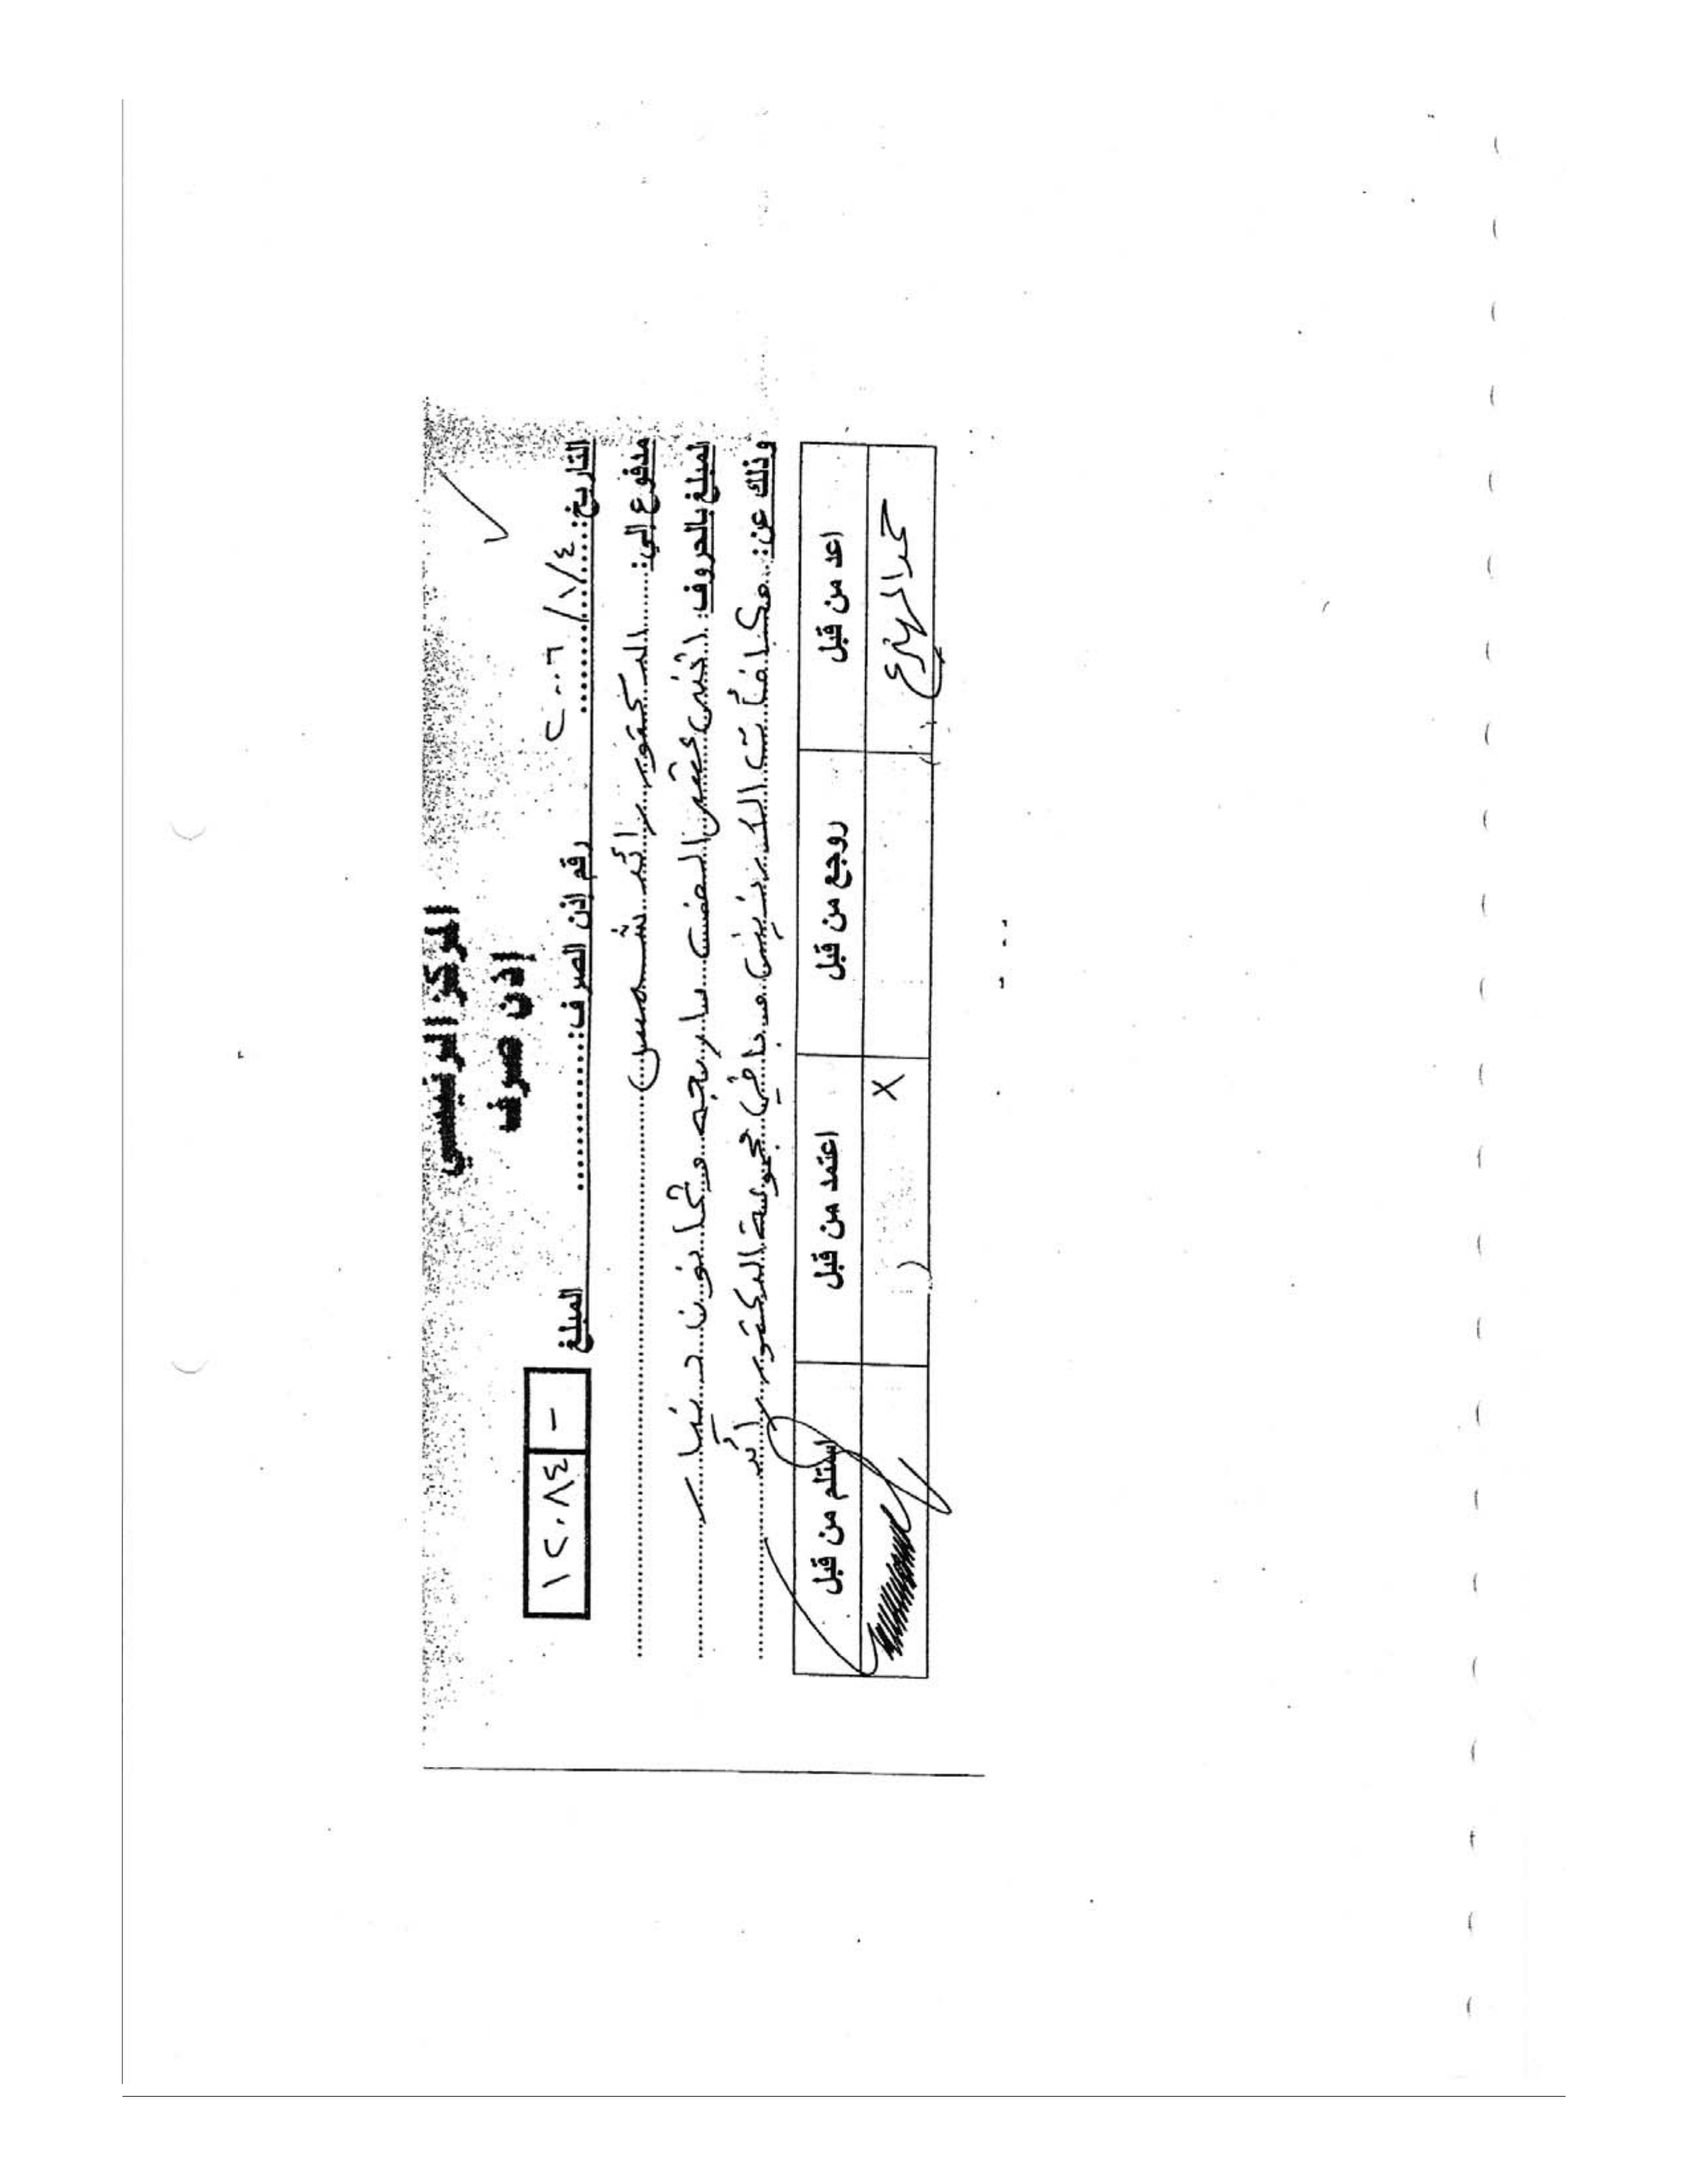 المركز الرئيسي
إذن صرف
التاريخ: ٤/١/٢٠٠٦ رقم إذن الصرف: المبلغ ١٢٠٨٤ -
مدفوع إلي: الدكتور رائد شمس
المبلغ بالحروف: اثنى عشر الف واربعه وثمانون دينار
وذلك عن: مكافآت المدربين من باقي مجموعة الدكتور رائد
اعد من قبل روجع من قبل اعتمد من قبل استلم من قبل
X